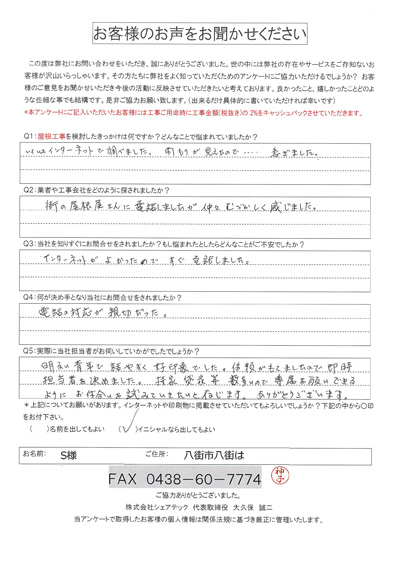 お客様のお声をお聞かせください
この度は弊社にお問い合わせをいただき、誠にありがとうございました。世の中には弊社の存在やサービスをご存知ないお
客様が沢山いらっしゃいます。その方たちに弊社をよく知っていただくためのアンケートにご協力いただけるでしょうか？ お客
様のご意見をお聞かせいただき今後の活動に反映させていただきたいと考えております。良かったこと、嬉しかったことどのよ
うな些細な事でも結構です。是非ご協力お願い致します。（出来るだけ具体的に書いていただければ幸いです）
*本アンケートにご記入いただいたお客様には工事ご用命時に工事金額(税抜き)の 2%をキャッシュバックさせていただきます。
Q1：屋根工事を検討したきっかけは何ですか？どんなことで悩まれていましたか？
いろいろインターネットで調べました。雨もりが見えたので・・・・ 急ぎました。
Q2：業者や工事会社をどのように探されましたか？
街の屋根屋さんに電話しましたが仲々むづかしく感じました。
Q3：当社を知りすぐにお問合せをされましたか？もし悩まれたとしたらどんなことがご不安でしたか？
インターネットがよかったのですぐ電話しました。
Q4：何が決め手となり当社にお問合せをされましたか？
電話の対応が親切だった。
Q5：実際に当社担当者がお伺いしていかがでしたでしょうか？
明るい青年で話やすく好印象でした。信頼がもてましたので即時
担当者を決めました。 数多いので専属お願いできる
ようにお付合いを試みていきたいと存じます。ありがとうございます。
*上記についてお願いがあります。インターネットや印刷物に掲載させていただいてもよろしいでしょうか？下記の中から〇印
をお付下さい。
（　）名前を出してもよい （✓）イニシャルなら出してもよい
お名前： S様 ご住所： 八街市八街は
FAX 0438-60-7774
ご協力ありがとうございました。
株式会社シェアテック 代表取締役 大久保 誠二
当アンケートで取得したお客様の個人情報は関係法規に基づき厳正に管理いたします。